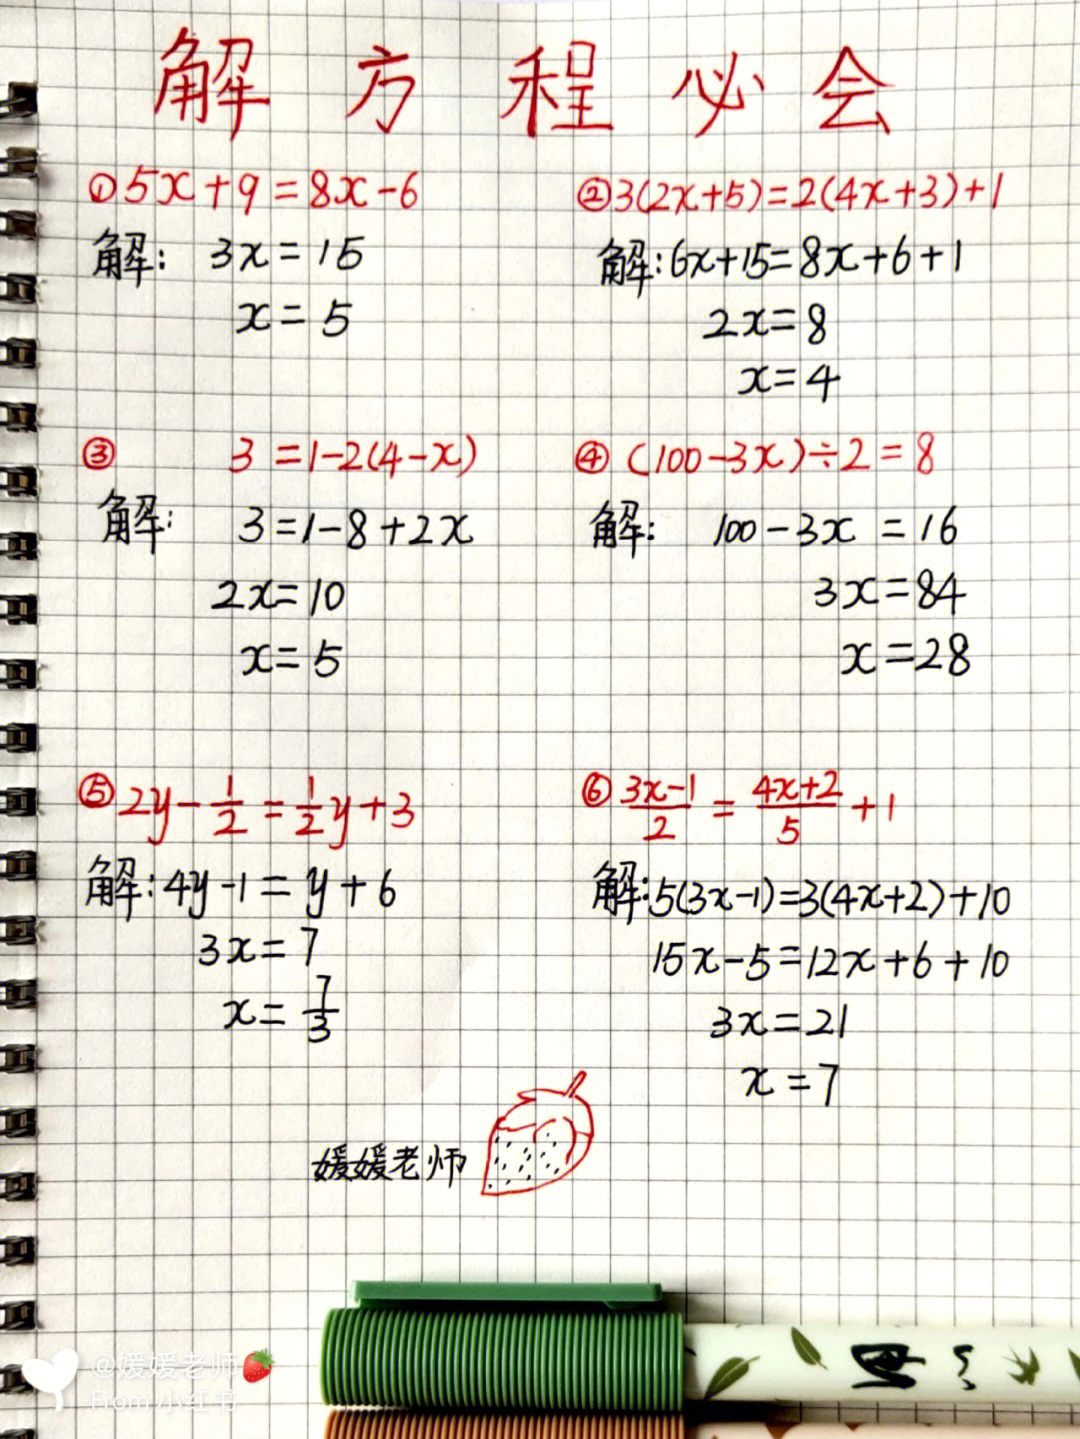 解方程必会
①5x+9=8x-6
解: 3x=15
x=5
②3(2x+5)=2(4x+3)+1
解:6x+15=8x+6+1
2x=8
x=4
③ 3=1-2(4-x)
解: 3=1-8+2x
2x=10
x=5
④(100-3x)÷2=8
解: 100-3x=16
3x=84
x=28
⑤2y-1/2=1/2y+3
解:4y-1=y+6
3x=7
x=7/3
⑥(3x-1)/2=(4x+2)/5+1
解:5(3x-1)=3(4x+2)+10
15x-5=12x+6+10
3x=21
x=7
媛媛老师
@媛媛老师🍓
From 小红书